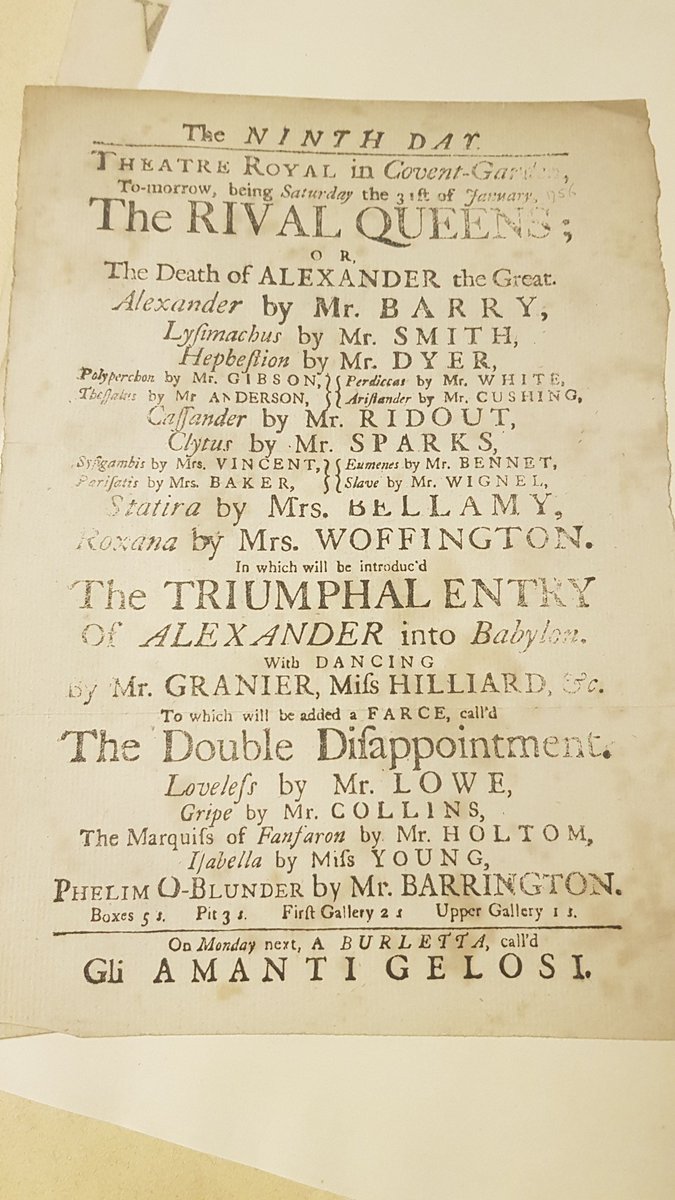 The NINTH DAY.
THEATRE ROYAL in Covent-Garden,
To-morrow, being Saturday the 31ſt of January,
The RIVAL QUEENS;
OR,
The Death of ALEXANDER the Great.
Alexander by Mr. BARRY,
Lyſimachus by Mr. SMITH,
Hepheſtion by Mr. DYER,
Polyperchon by Mr. GIBSON, } { Perdiccas by Mr. WHITE,
Theſſalus by Mr ANDERSON, } { Ariſtander by Mr. CUSHING,
Caſſander by Mr. RIDOUT,
Clytus by Mr. SPARKS,
Syſigambis by Mrs. VINCENT, } { Eumenes by Mr. BENNET,
Pariſatis by Mrs. BAKER, } { Slave by Mr. WIGNEL,
Statira by Mrs. BELLAMY,
Roxana by Mrs. WOFFINGTON.
In which will be introduc'd
The TRIUMPHAL ENTRY
Of ALEXANDER into Babylon.
With DANCING
By Mr. GRANIER, Miſs HILLIARD, &c.
To which will be added a FARCE, call'd
The Double Diſappointment.
Loveleſs by Mr. LOWE,
Gripe by Mr. COLLINS,
The Marquiſs of Fanfaron by Mr. HOLTOM,
Iſabella by Miſs YOUNG,
PHELIM O-BLUNDER by Mr. BARRINGTON.
Boxes 5 s. Pit 3 s. Firſt Gallery 2 s Upper Gallery 1 s.
On Monday next, A BURLETTA, call'd
Gli AMANTI GELOSI.